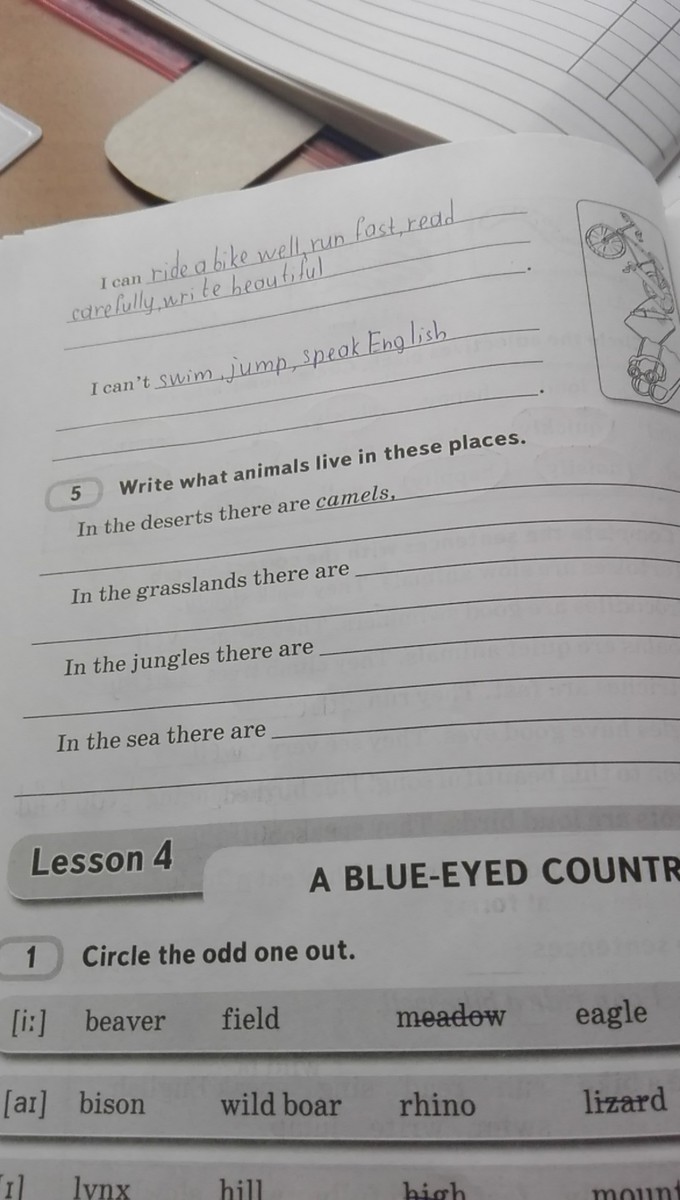 I can ride a bike well, run fast, read
carefully, write beautiful
.
I can't swim, jump, speak English
.
5 Write what animals live in these places.
In the deserts there are camels,
In the grasslands there are
In the jungles there are
In the sea there are
Lesson 4
A BLUE-EYED COUNTR
1 Circle the odd one out.
[i:] beaver field meadow eagle
[aɪ] bison wild boar rhino lizard
[ɪ] lynx hill high mount